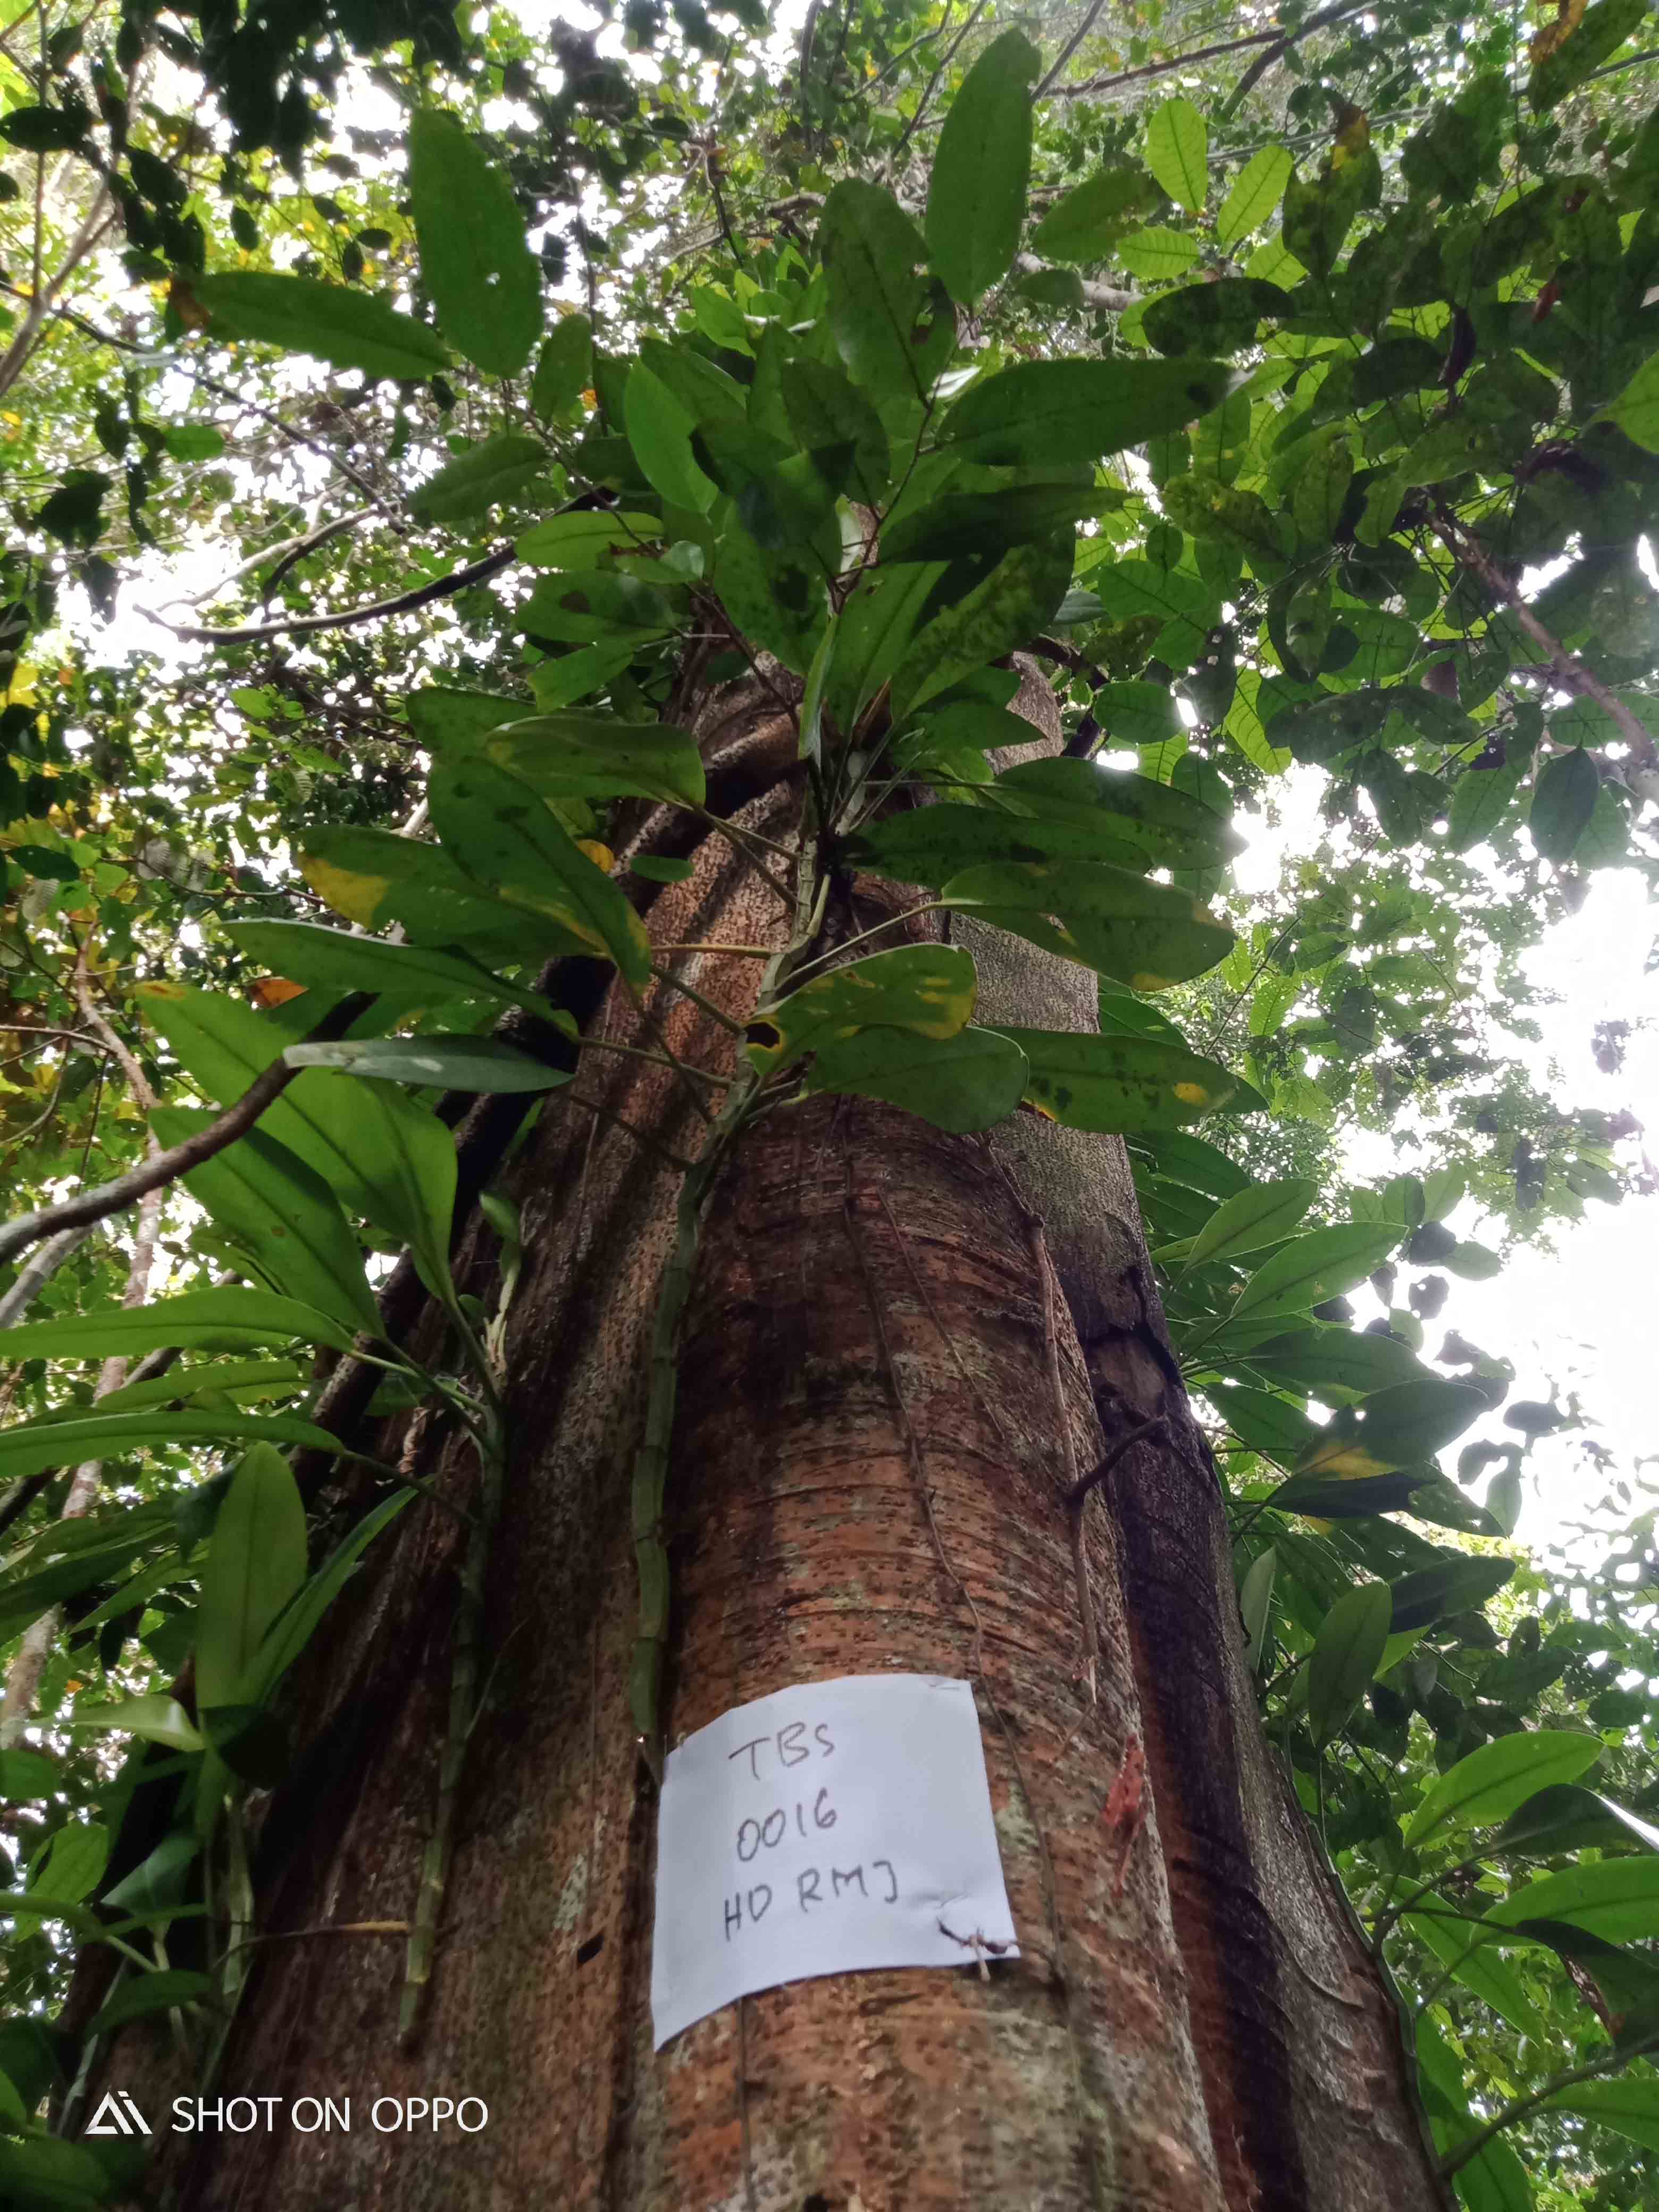 TBS
0016
HD RMJ
SHOT ON OPPO